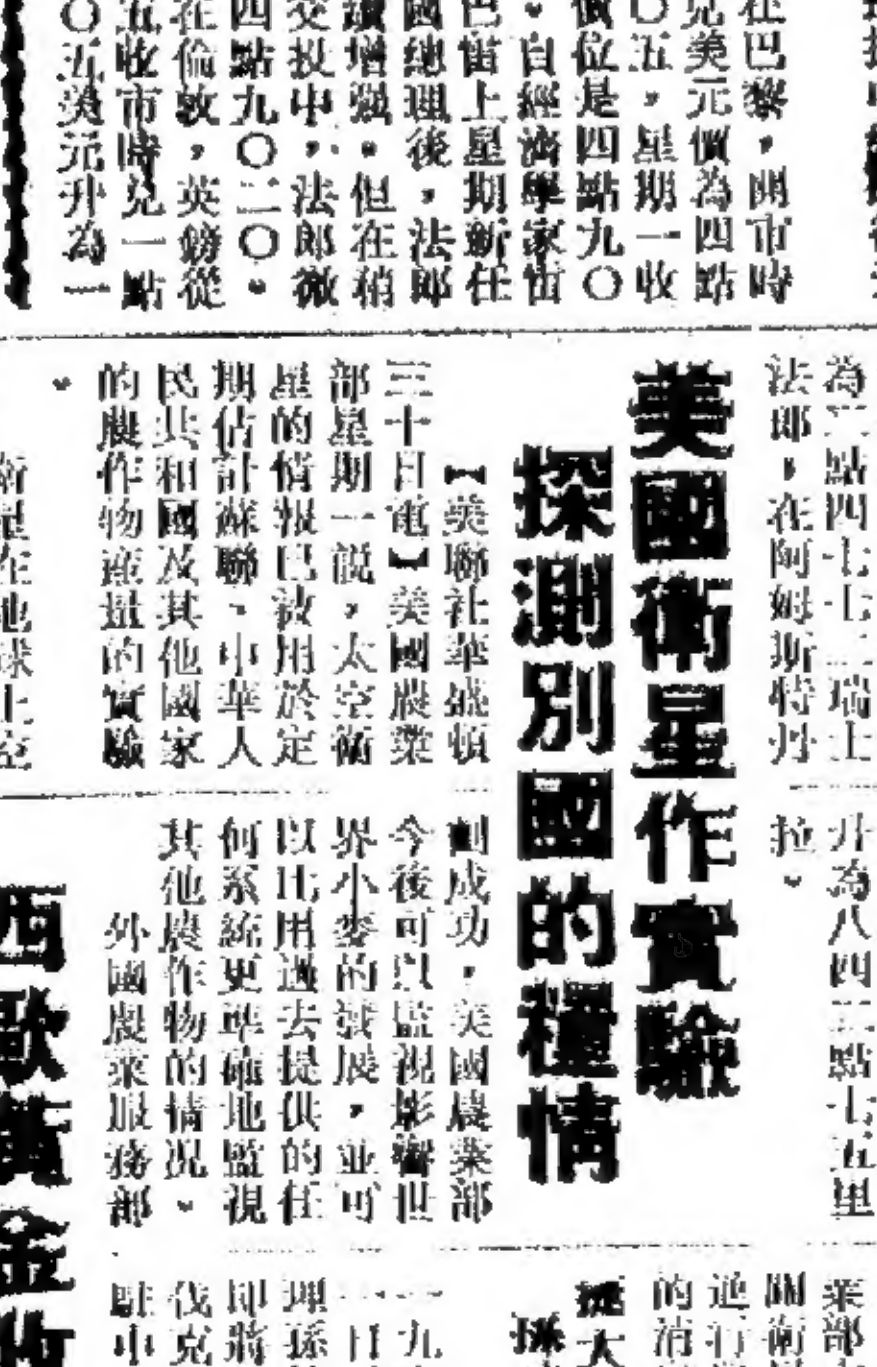 在巴黎，開市時
兌美元價為四點
〇五，星期一收
價位是四點九〇
。自經濟學家雷
巴雷上星期新任
國總理後，法郎
續增强。但在稍
交投中，法郎微
四點九〇二〇。
在倫敦，英鎊從
五收市時兌一點
〇五美元升為一
為二點四七七二瑞士
法郎，在阿姆斯特丹
美國衛星作實驗
探測別國的種情
【美聯社華盛頓
三十日電】美國農業
部星期一說，太空衛
星的情報已被用於定
期估計蘇聯、中華人
民共和國及其他國家
的農作物產量的實驗
。
衛星在地球上空
升為八四三點七五里
拉。
劃成功，美國農業部
今後可以監視影響世
界小麥的發展，並可
以比用過去提供的任
何系統更準確地監視
其他農作物的情况。
外國農業服務部
西歐黃金
業部
關衛
進行
的消
一九
一日
理孫
即將
伐克
駐中